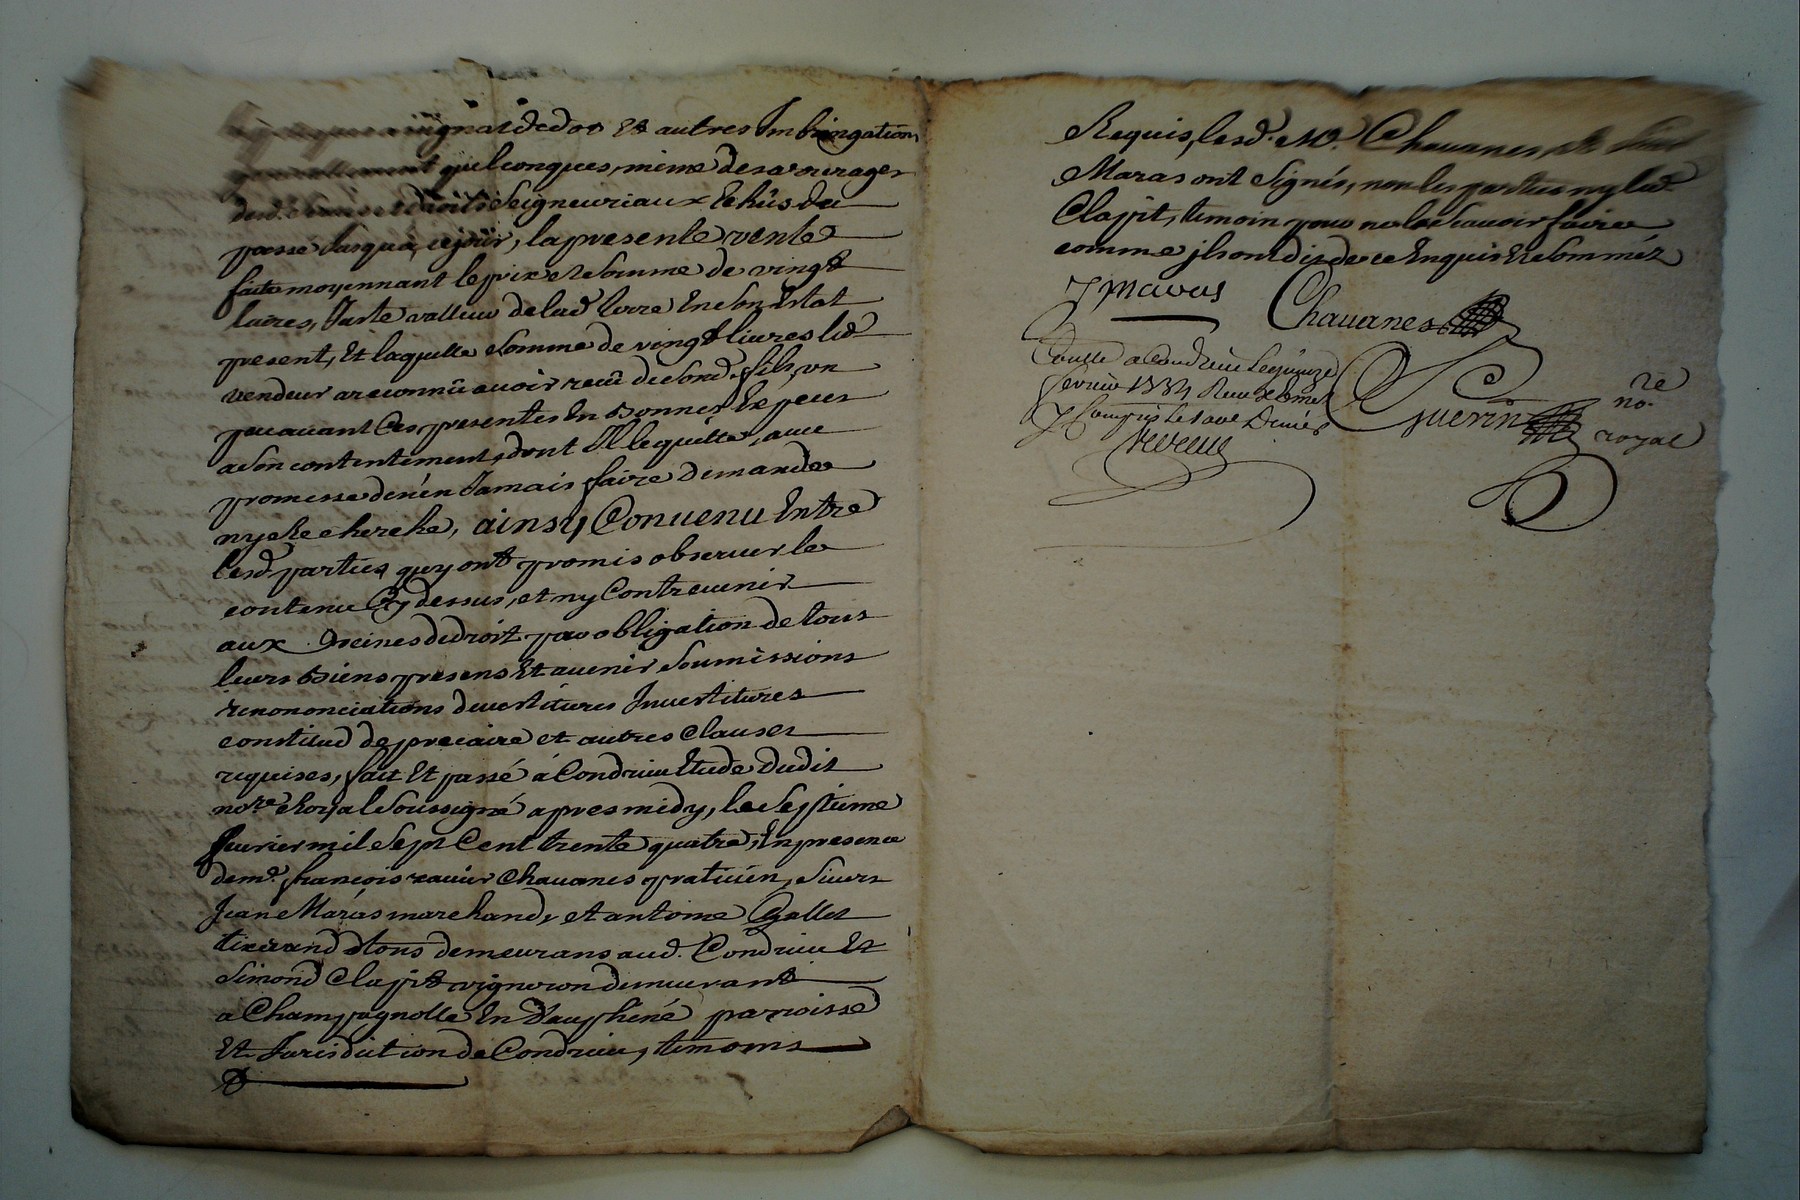 assignat de dot Et autres Imbringations
generallement quelconques, mesme des arrerages
desd. Seigneuriaux Echûs du
passé Jusqua, cejour, la presente vente
faite moyennant le prix et Somme de vingt
livres, Juste valleur de lad. terre En son Estat
present, Et laquelle Somme de vingt livres led.
vendeur a reconnû avoir receû desond. fils, un
peu avant Ces presentes En Bonnes Especes
a Son contentement, dont Il le quitte, avec
promesse de n'en Jamais faire demande
ny recherche, ainsy Convenu Entre
lesd. parties quy ont promis observer le
contenu Cy dessus, et ny Contrevenir
aux peines de droit par obligation de tous
leurs Biens presens Et avenir Soumissions
renononciations devestitures Investitures
constitud de precaire et autres Clauses
requises, fait Et passé à Condrieu Etude dudit
nore. Royal Soussigné apres midy, le Septieme
fevrier mil Sept Cent trente quatre, En presence
de me. françois xavier Chavanes praticien, Sieurs
Jean Maras marchand, et antoine Gallet
tixerand tous demeurans aud. Condrieu Et
Simond Clapit vigneron demeurant
a Champagnolle En Dauphiné parroisse
Et Jurisdiction de Condrieu, temoins
Requis, lesd. Me. Chavanes, et
Maras ont Signés, non les parties ny led.
Clapit, temoin pour ne le Scavoir faire
comme ils ont dit de ce Enquis Et Sommés
J maras Chavanes
a Condrieu Le quinze
fevrier 1734 Receu
Y Compris les
Guerin nore royal